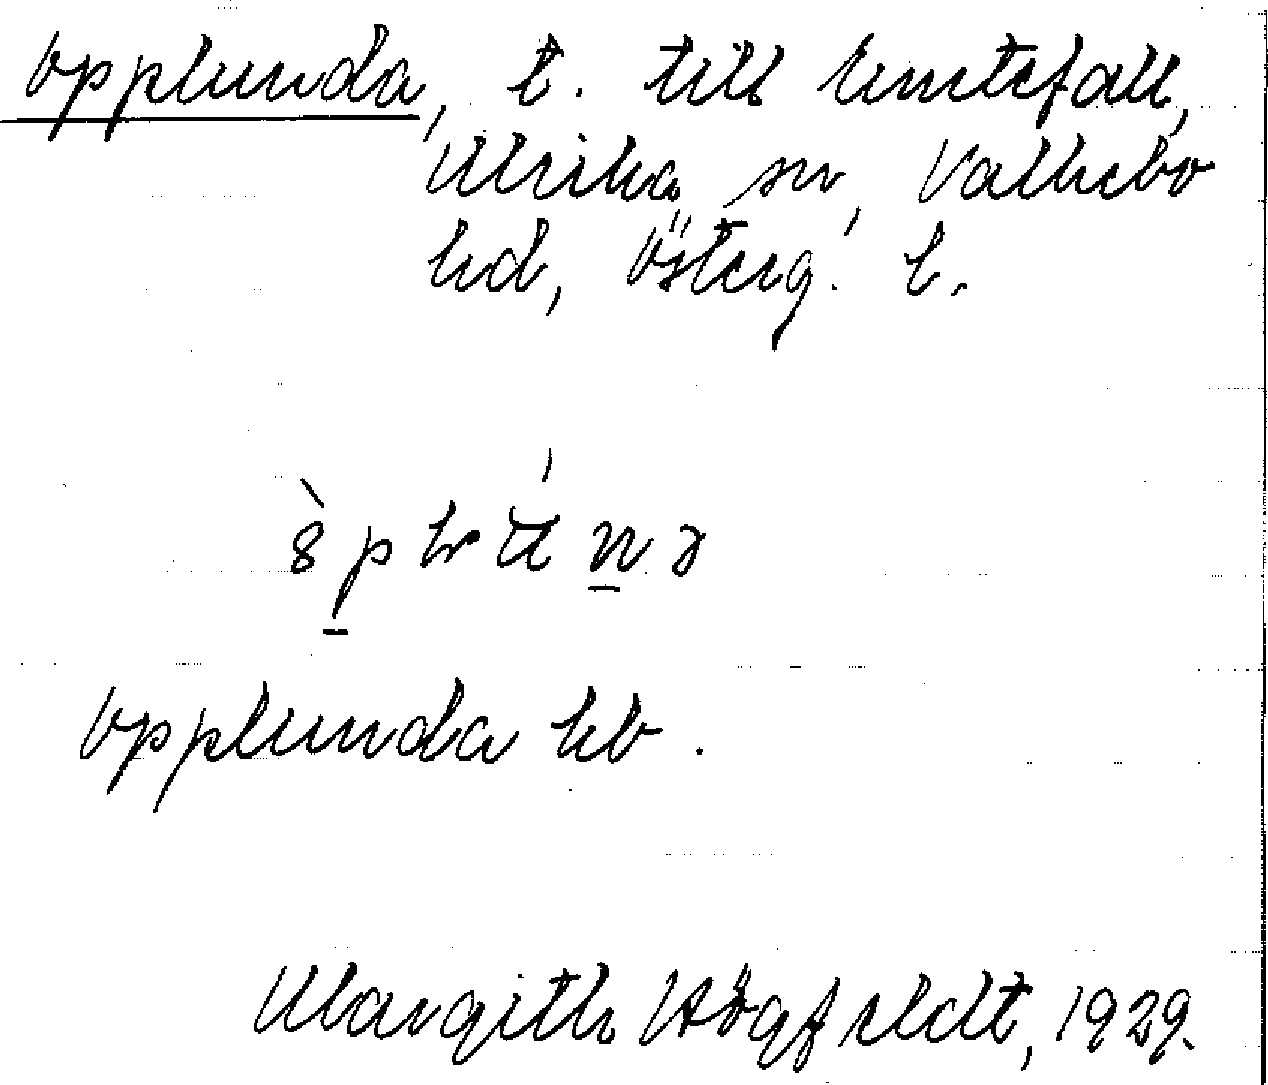 Opplunda, t. till Lintefall,
Ulrika sn, Valkebo
hd, Österg. l.
Opplunda kb.
Margith Högfeldt, 1929.